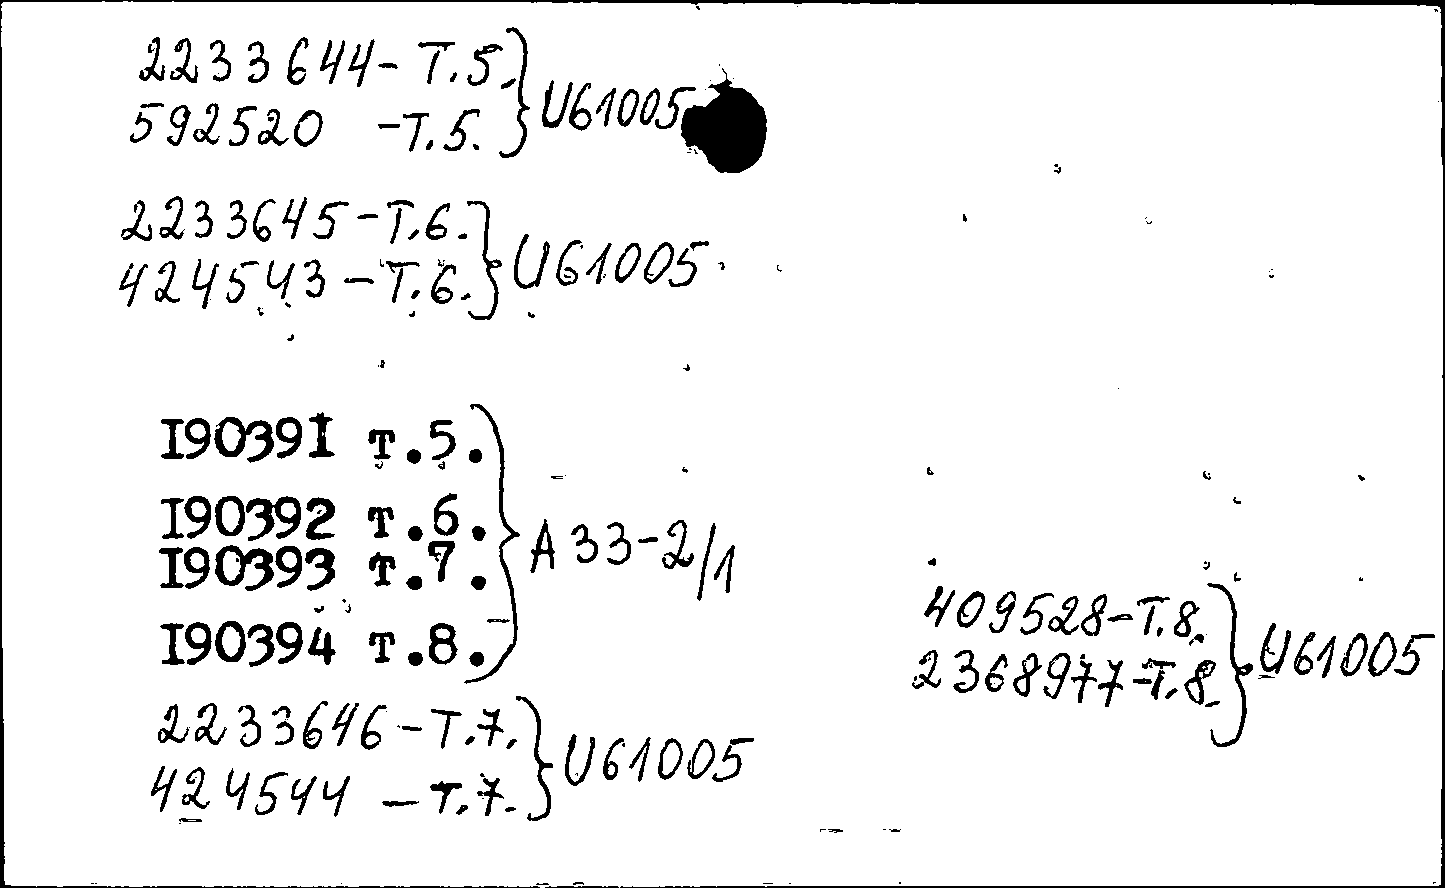 2233644-Т.5.} U61005
592520 -Т.5.
2233645-Т.6.} U61005
424543-Т.6.
I9039I т.5.
I90392 т.6.} A 33-2/1
I90393 т.7.
I90394 т.8.
2233646-Т.7.} U61005
424544 -Т.7.
409528-Т.8.} U61005
2368977-Т.8.